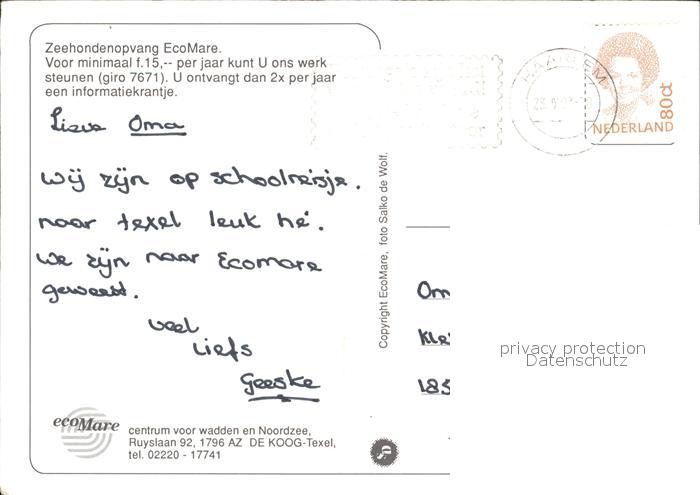 Zeehondenopvang EcoMare.
Voor minimaal f.15,-- per jaar kunt U ons werk
steunen (giro 7671). U ontvangt dan 2x per jaar
een informatiekrantje.
Lieve Oma
wij zijn op schoolreisje.
naar texel leuk hé.
we zijn naar Ecomare
geweest.
veel
liefs
Geeske
ecoMare
centrum voor wadden en Noordzee,
Ruyslaan 92, 1796 AZ DE KOOG-Texel,
tel. 02220 - 17741
Copyright EcoMare, foto Salko de Wolf.
HAARLEM
80ct
NEDERLAND
Om
Kle
185
privacy protection
Datenschutz